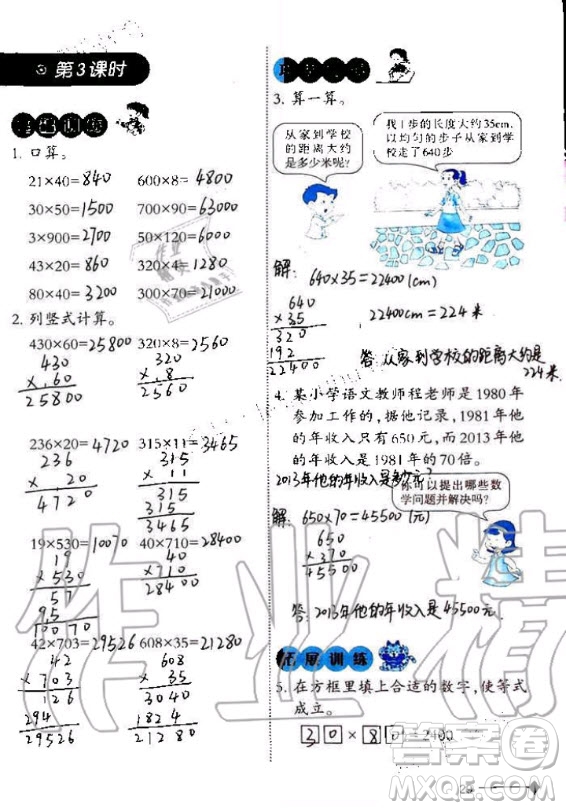 第3课时
基础训练
1. 口算。
21×40=840 600×8=4800
30×50=1500 700×90=63000
3×900=2700 50×40=2000
43×20=860 320×4=1280
80×40=3200 300×70=21000
2. 列竖式计算。
430×60=25800 320×8=2560
430 320
×.60 ×.8
25800 2560
236×20=4720 315×11=3465
236 315
× 20 × 11
4720 315
315
3465
19×530=10070 40×710=28400
19 40
×530 ×710
57 28400
95
10070
42×703=29526 608×35=21280
42 608
×703 × 35
126 3040
294 1824
29526 21280
3. 算一算。
从家到学校
的距离大约
是多少米呢?
我1步的长度大约35cm,
以均匀的步子从家到学
校走了640步
解: 640×35=22400(cm)
640
×35
320
192
22400
22400cm=224米
答:从家到学校的距离大约是
224米.
4. 某小学语文教师程老师是1980年
参加工作的,据他记录,1981年他
的年收入只有650元,而2013年他
的年收入是1981年的70倍。
2013年他的年收入是多少元?
你可以提出哪些数
学问题并解决吗?
解: 650×70=45500(元)
650
×70
45500
答:2013年他的年收入是45500元.
拓展训练
5. 在方框里填上合适的数字,使等式
成立。
30×80=2400
作业精
答案卷
MXQE.COM